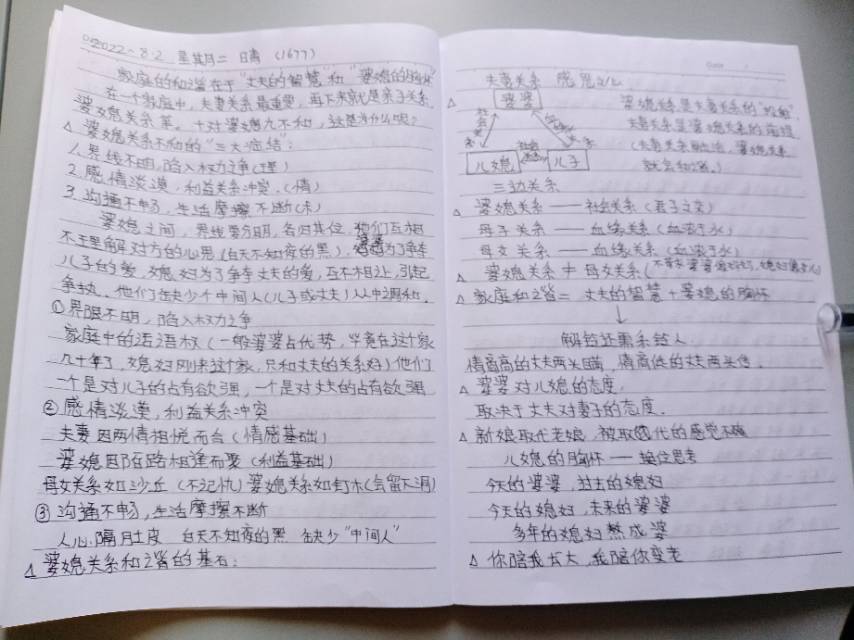 2022-8.2 星期二 晴 (1677)
家庭的和谐在于"丈夫的智慧"和"婆媳的胸怀"
在一个家庭中，夫妻关系最重要，再下来就是亲子关系，
婆媳关系等。十对婆媳九不和，这是为什么呢？
△ 婆媳关系不和的"三大症结"：
1. 界线不明，陷入权力之争(理)
2. 感情淡漠，利益关系冲突。(情)
3. 沟通不畅，生活摩擦不断(术)
婆媳之间，界线要分明，各归其位，他们互相
不理解对方的心思(白天不知夜的黑)，婆婆为了争夺
儿子的爱，媳妇为了争夺丈夫的爱，互不相让，引起
争执。他们缺少个中间人(儿子或丈夫)从中调和。
① 界限不明，陷入权力之争
家庭中的话语权(一般婆婆占优势，毕竟在这个家
几十年了，媳妇刚来这个家，只和丈夫的关系好)他们
一个是对儿子的占有欲强，一个是对丈夫的占有欲强
② 感情淡漠，利益关系冲突
夫妻因两情相悦而合(情感基础)
婆媳因陌路相逢而聚(利益基础)
母女关系如沙丘(不记仇)婆媳关系如钉木(会留下洞)
③ 沟通不畅，生活摩擦不断
人心隔肚皮 白天不知夜的黑 缺少"中间人"
△ 婆媳关系和谐的基石：
夫妻关系 隐忍
△ 婆婆
社会关系
儿媳
儿子
三边关系
婆媳关系是夫妻关系的"投射"
夫妻关系是婆媳关系的前提
(夫妻关系融洽，婆媳关系
就会和谐。)
△ 婆媳关系——社会关系(君子之交)
母子关系——血缘关系(血浓于水)
母女关系——血缘关系(血浓于水)
△ 婆媳关系≠母女关系
△ 家庭和谐=丈夫的智慧+婆媳的胸怀
↓
解铃还需系铃人
情商高的丈夫两头瞒，情商低的丈夫两头传
△ 婆婆对儿媳的态度，
取决于丈夫对妻子的态度。
△ 新娘取代老娘，被取代的感觉不爽
儿媳的胸怀——换位思考
今天的婆婆，过去的媳妇
今天的媳妇，未来的婆婆
多年的媳妇熬成婆
△ 你陪我长大，我陪你变老